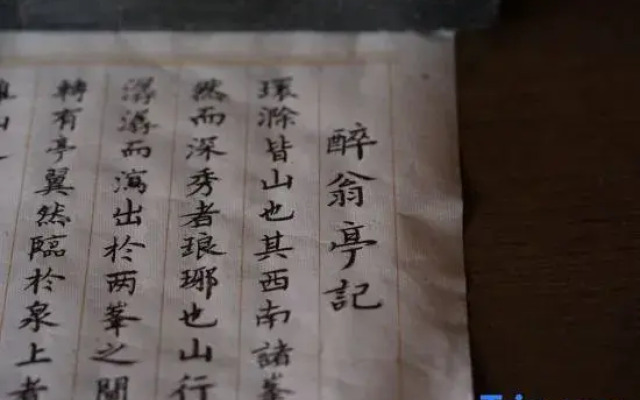 醉翁亭記
環滁皆山也其西南諸峯
然而深秀者琅琊也山行
潺潺而瀉出於两峯之間
轉有亭翼然臨於泉上者